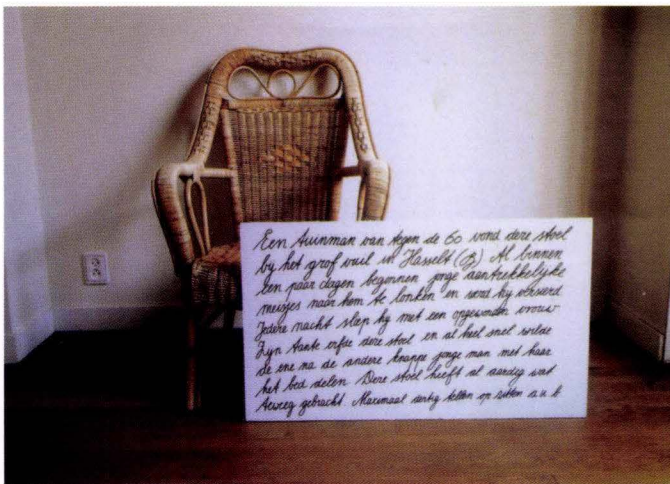 Een tuinman van tegen de 60 vond deze stoel
by het grof vuil in Hasselt (B) Al binnen
een paar dagen begonnen jonge aantrekkelyke
meisjes naar hem te lonken en werd hy versierd
Iedere nacht sliep hy met een opgewonden vrouw
Zyn tante erfde deze stoel en al heel snel wilde
de ene na de andere knappe jonge man met haar
het bed delen. Deze stoel heeft al aardig wat
teweeg gebracht. Maximaal dertig tellen op zitten a.u.b.